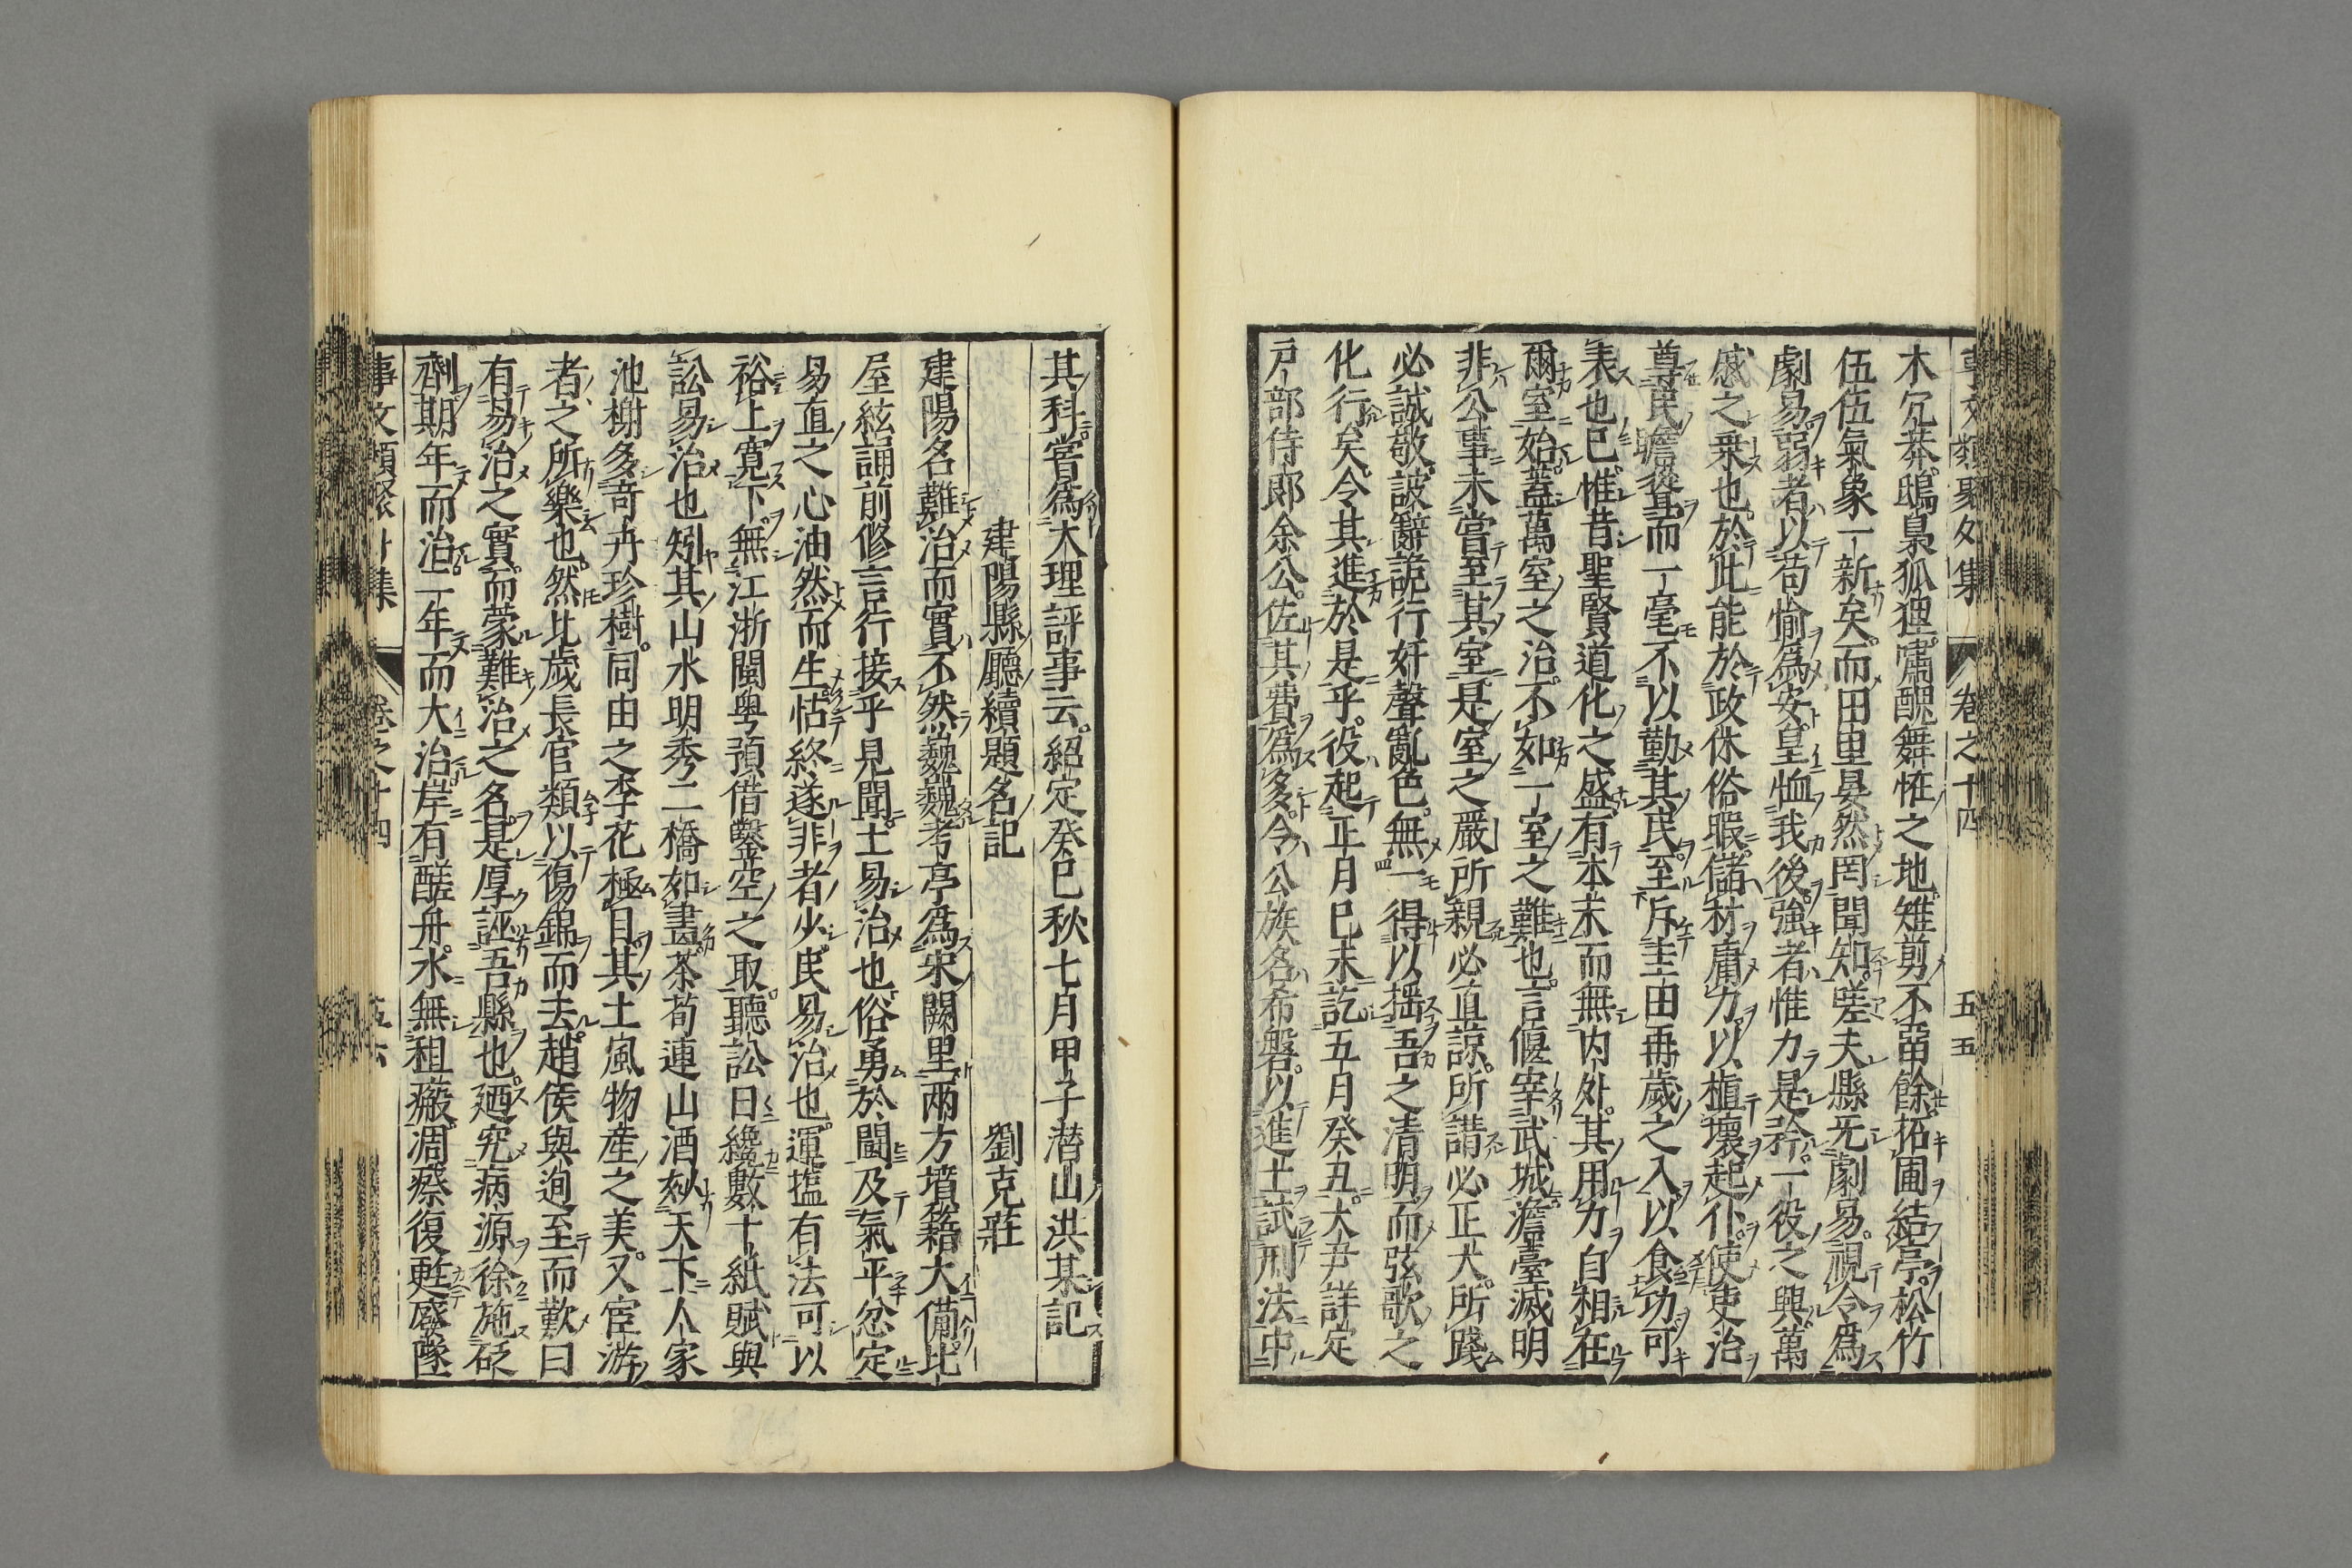 事文類聚外集 卷之十四 五五
木冗莽鴟梟狐狸嘯醜舞恠之地雉剪不菑餘拓圃結亭松竹
伍伍氣象一新矣而田里晏然罔聞知嗟夫縣无劇易視令爲
劇易弱者以苟愉爲安皇恤我後強者惟力是矜一役之興萬
戚之乗也於此能於政休俗暇儲材庸力以植壞起仆使吏治
尊民瞻聳而一毫不以勤其民至斥圭田再歲之入以食功可
表也已惟昔聖賢道化之盛有本末而無内外其用力自相在
爾室始蓋萬室之治不如一室之難也言偃宰武城澹臺滅明
非公事未嘗至其室是室之嚴所親必直諒所講必正大所踐
必誠敬詖辭詭行奸聲亂色無一得以揺吾之清明而弦歌之
化行矣令其進於是乎役起正月巳未訖五月癸丑大尹詳定
戸部侍郎余公佐其費爲多令公族名希磐以進士試刑法中
其科嘗爲大理評事云紹定癸巳秋七月甲子潜山洪某記
建陽縣廳續題名記 劉克莊
建陽名難治而實不然巍巍考亭爲宋闕里兩方墳籍大備比
屋絃誦前修言行接乎見聞士易治也俗勇於鬪及氣平忿定
易直之心油然而生怙終遂非者少民易治也運塩有法可以
裕上寛下無江浙閩粤預借鑿空之取聽訟日纔數十紙賦與
訟易治也矧其山水明秀二橋如畫茶荀連山酒妙天下人家
池榭多竒卉珍樹同由之李花極目其土風物産之美又宦游
者之所樂也然比歲長官類以傷錦而去趙侯與迿至而歎曰
有易治之實而蒙難治之名是厚誣吾縣也廼究病源徐施砭
劑期年而治二年而大治岸有醝舟水無租瘢凋瘵復甦廢墜
事文類聚外集 卷之十四 五六